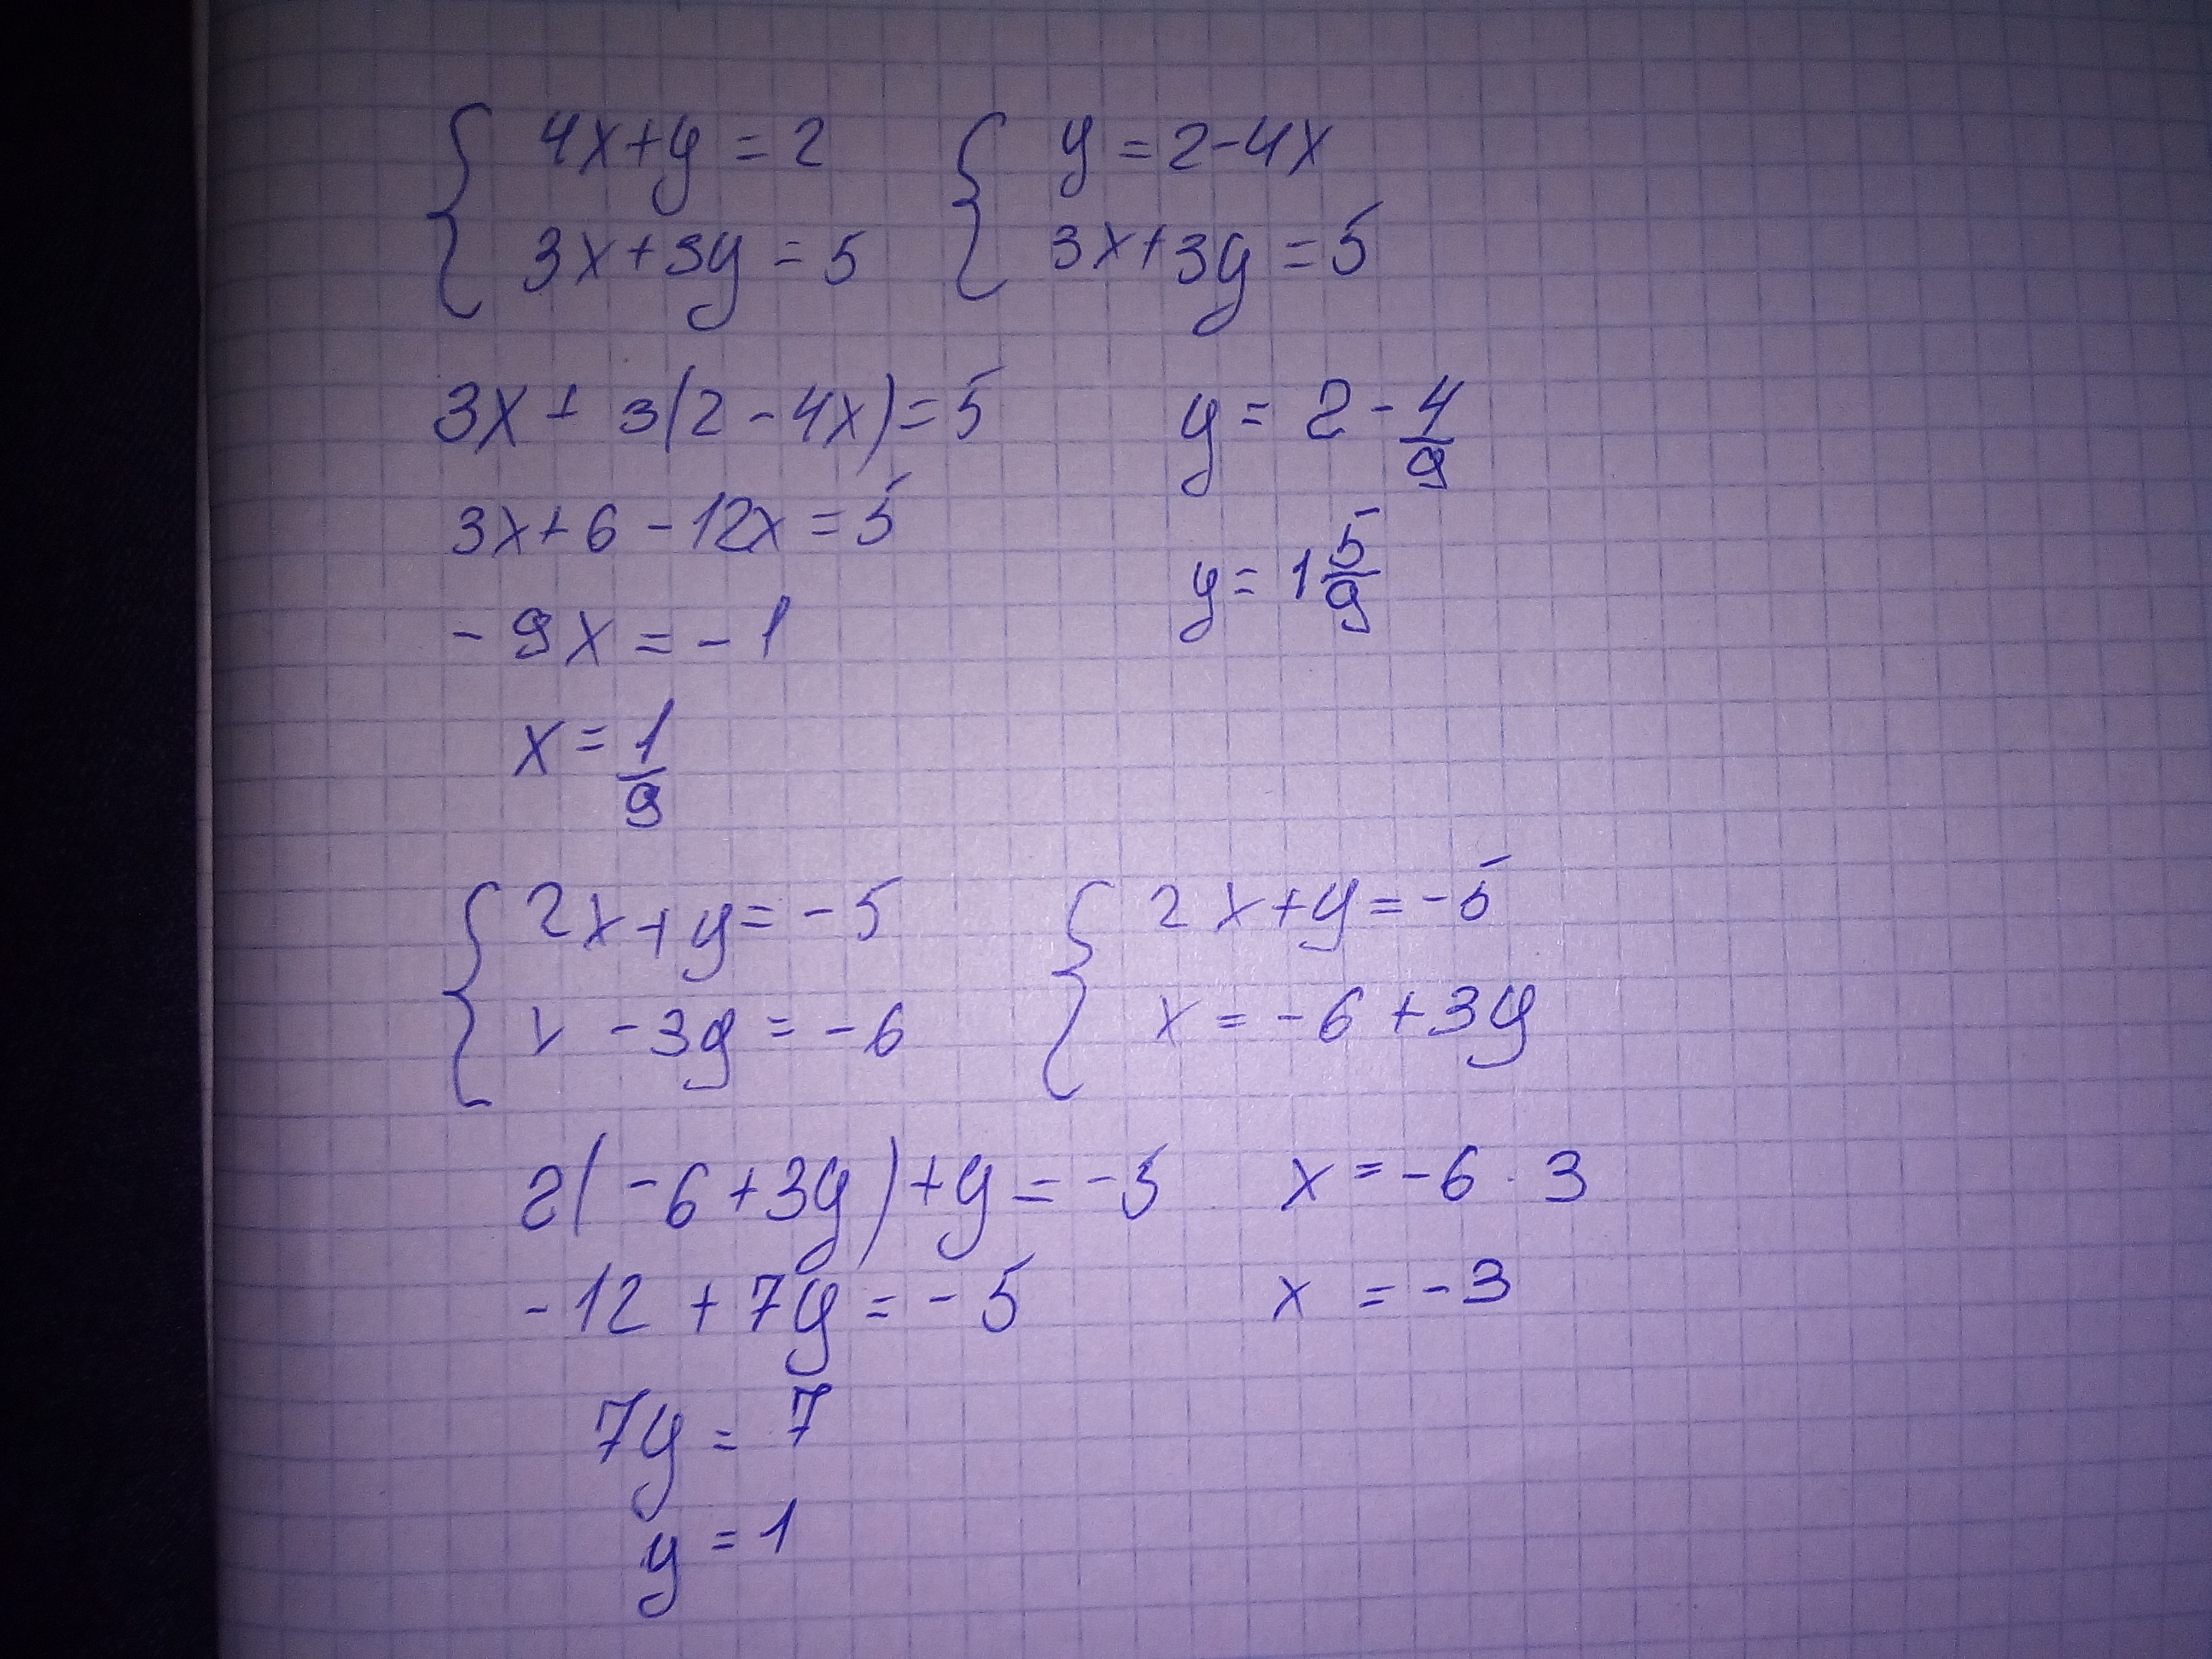 { 4x+y=2 { y=2-4x
3x+3y=5 3x+3y=5
3x+3(2-4x)=5 y=2-4/9
3x+6-12x=5 y=1 5/9
-9x=-1
x=1/9
{ 2x+y=-5 { 2x+y=-5
x-3y=-6 x=-6+3y
2(-6+3y)+y=-5 x=-6·3
-12+7y=-5 x=-3
7y=7
y=1